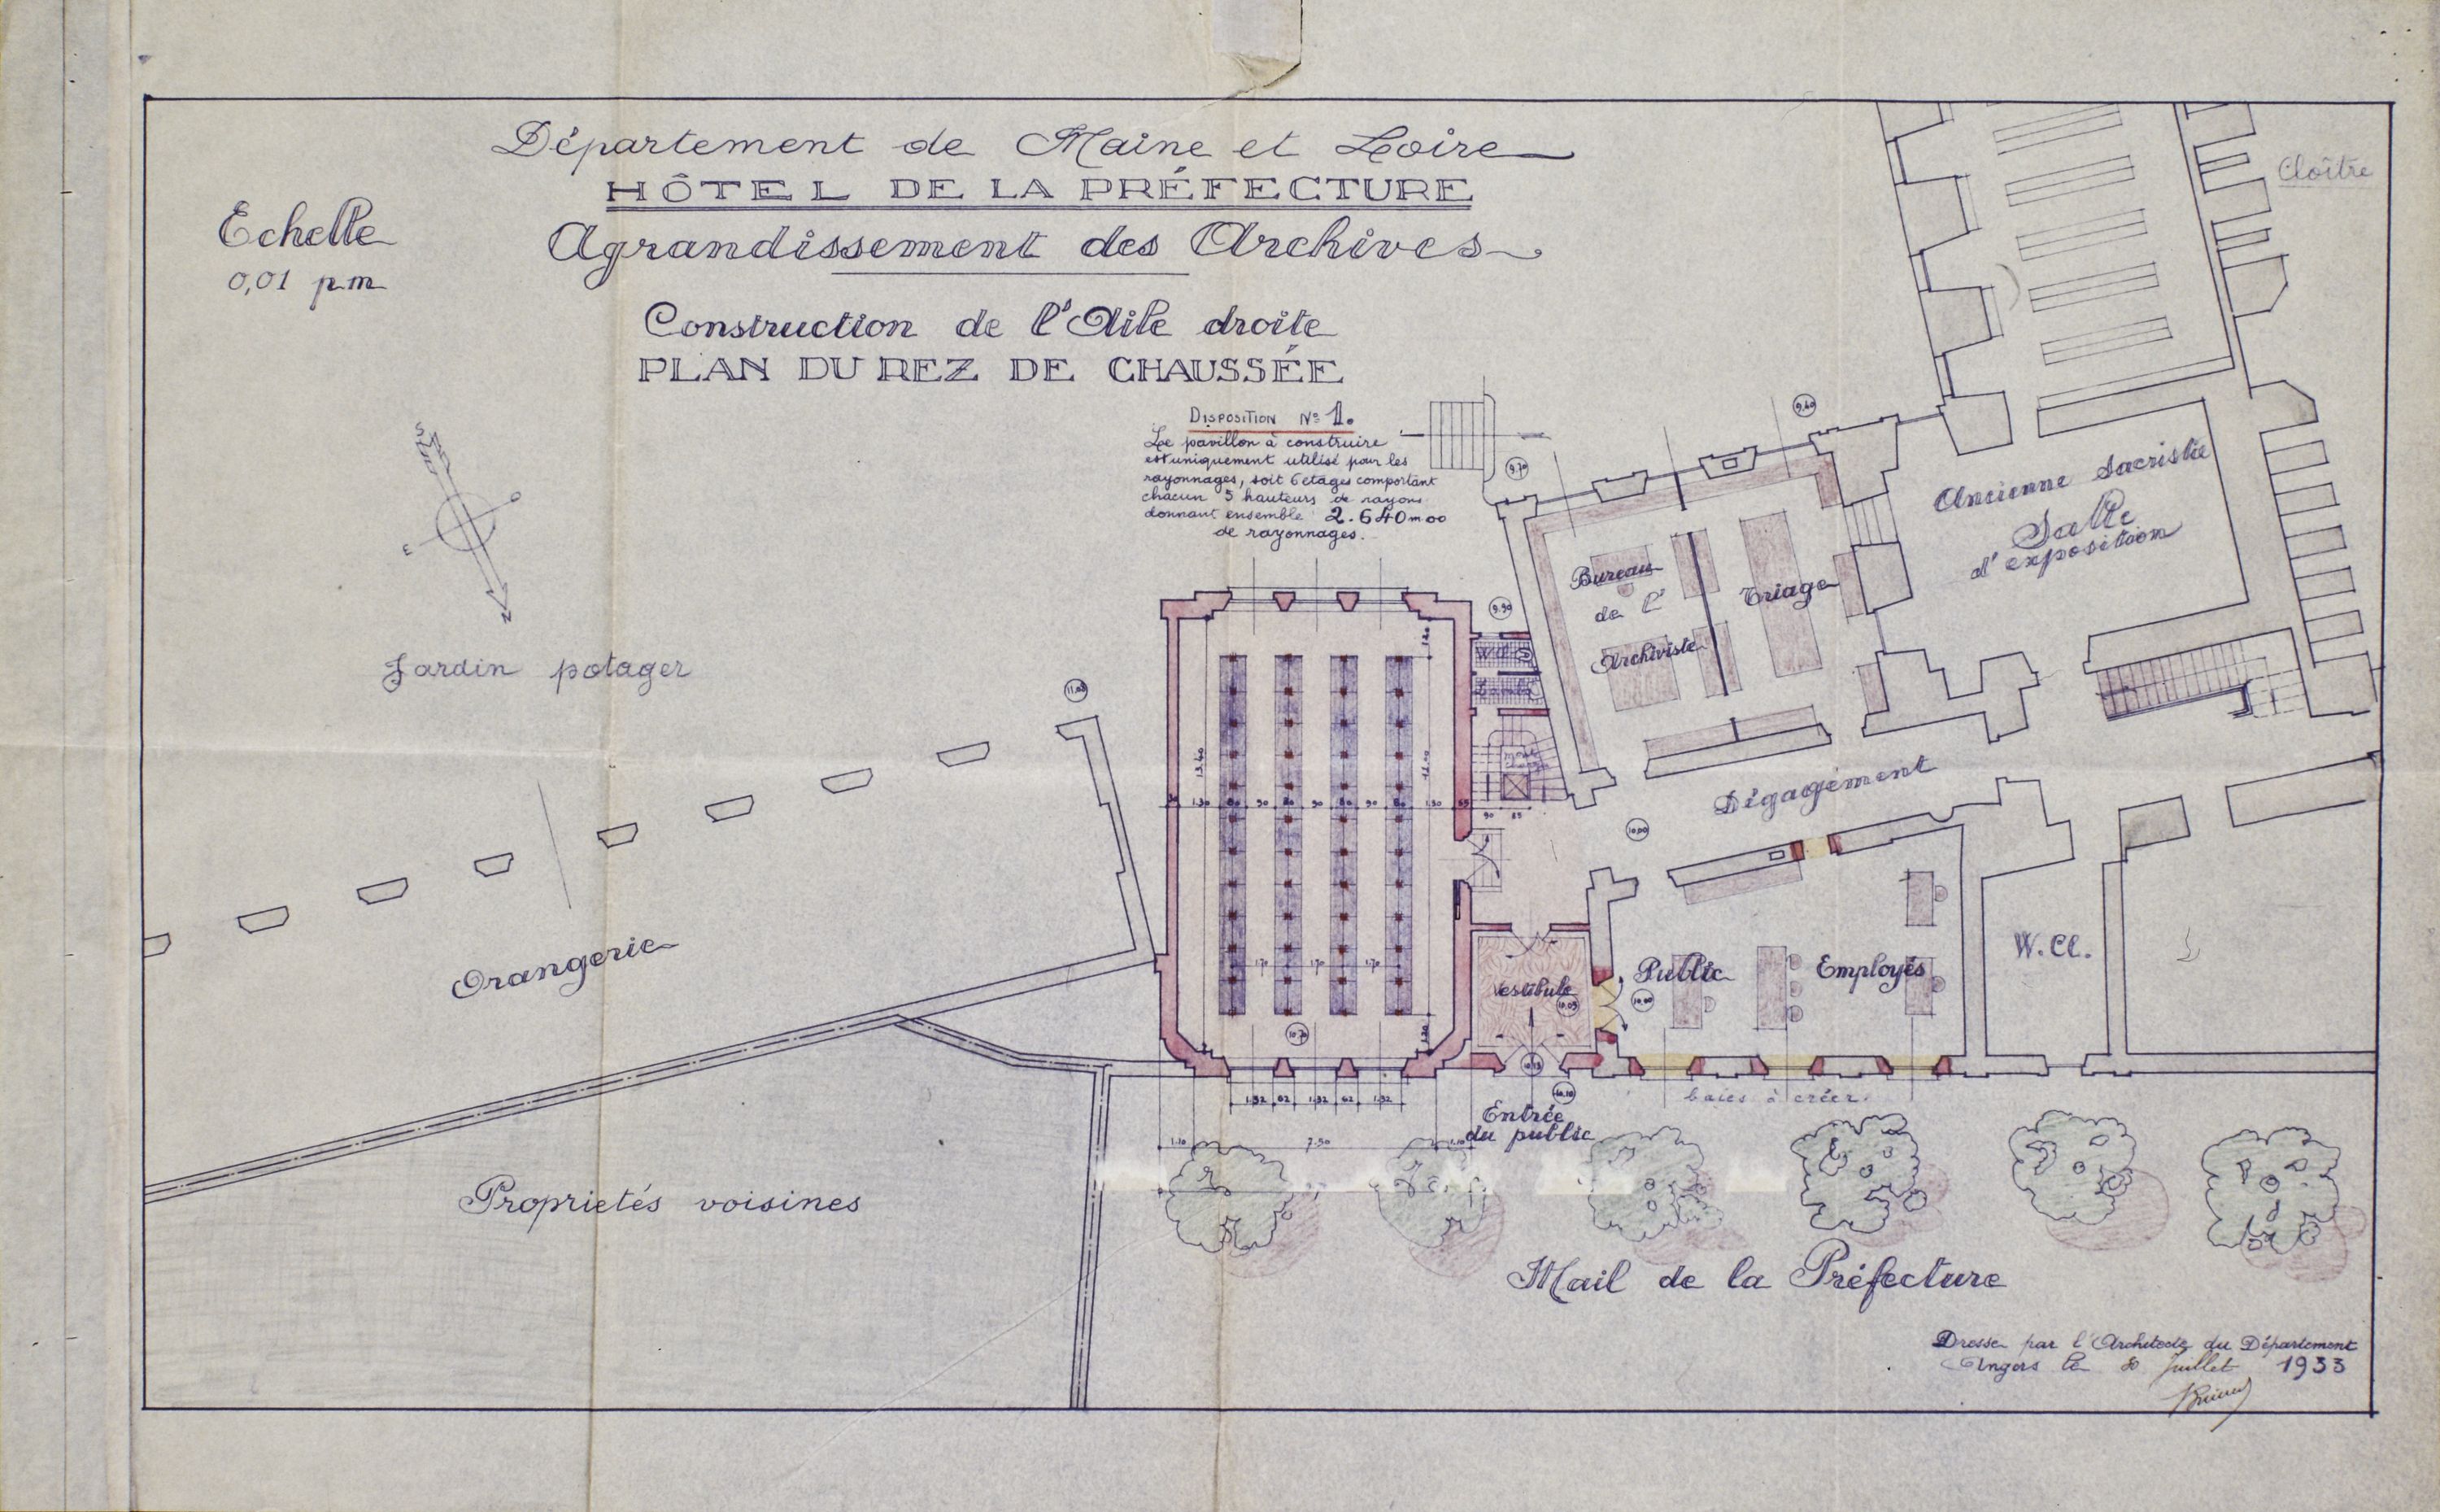 Département de Maine et Loire
HÔTEL DE LA PRÉFECTURE
Agrandissement des Archives
Echelle
0,01 p.m
Construction de l'Aile droite
PLAN DU REZ DE CHAUSSÉE
Cloître
DISPOSITION Nº 1.
Le pavillon à construire
est uniquement utilisé pour les
rayonnages, soit 6 etages comportant
chacun 5 hauteurs de rayons
donnant ensemble 2.640m00
de rayonnages.
9.60
9.70
S
O
E
N
Ancienne Sacristie
Salle
d'exposition
Bureau
de l'
Archiviste
Triage
9.90
W.C.
Jardin potager
11.00
13.40
1.30 80 90 80 90 80 90 80 1.30 55
90 85
Dégagement
10.00
Orangerie
1.70 1.70 1.70
Vestibule
10.05
10.00
Public
Employés
W.Cl.
10.20
10.15
10.10
baies à créer.
1.52 62 1.52 62 1.52
Entrée
du public
1.10 7.50 1.10
Proprietés voisines
Mail de la Préfecture
Dressé par l'Architecte du Département
Angers le 8 Juillet 1933